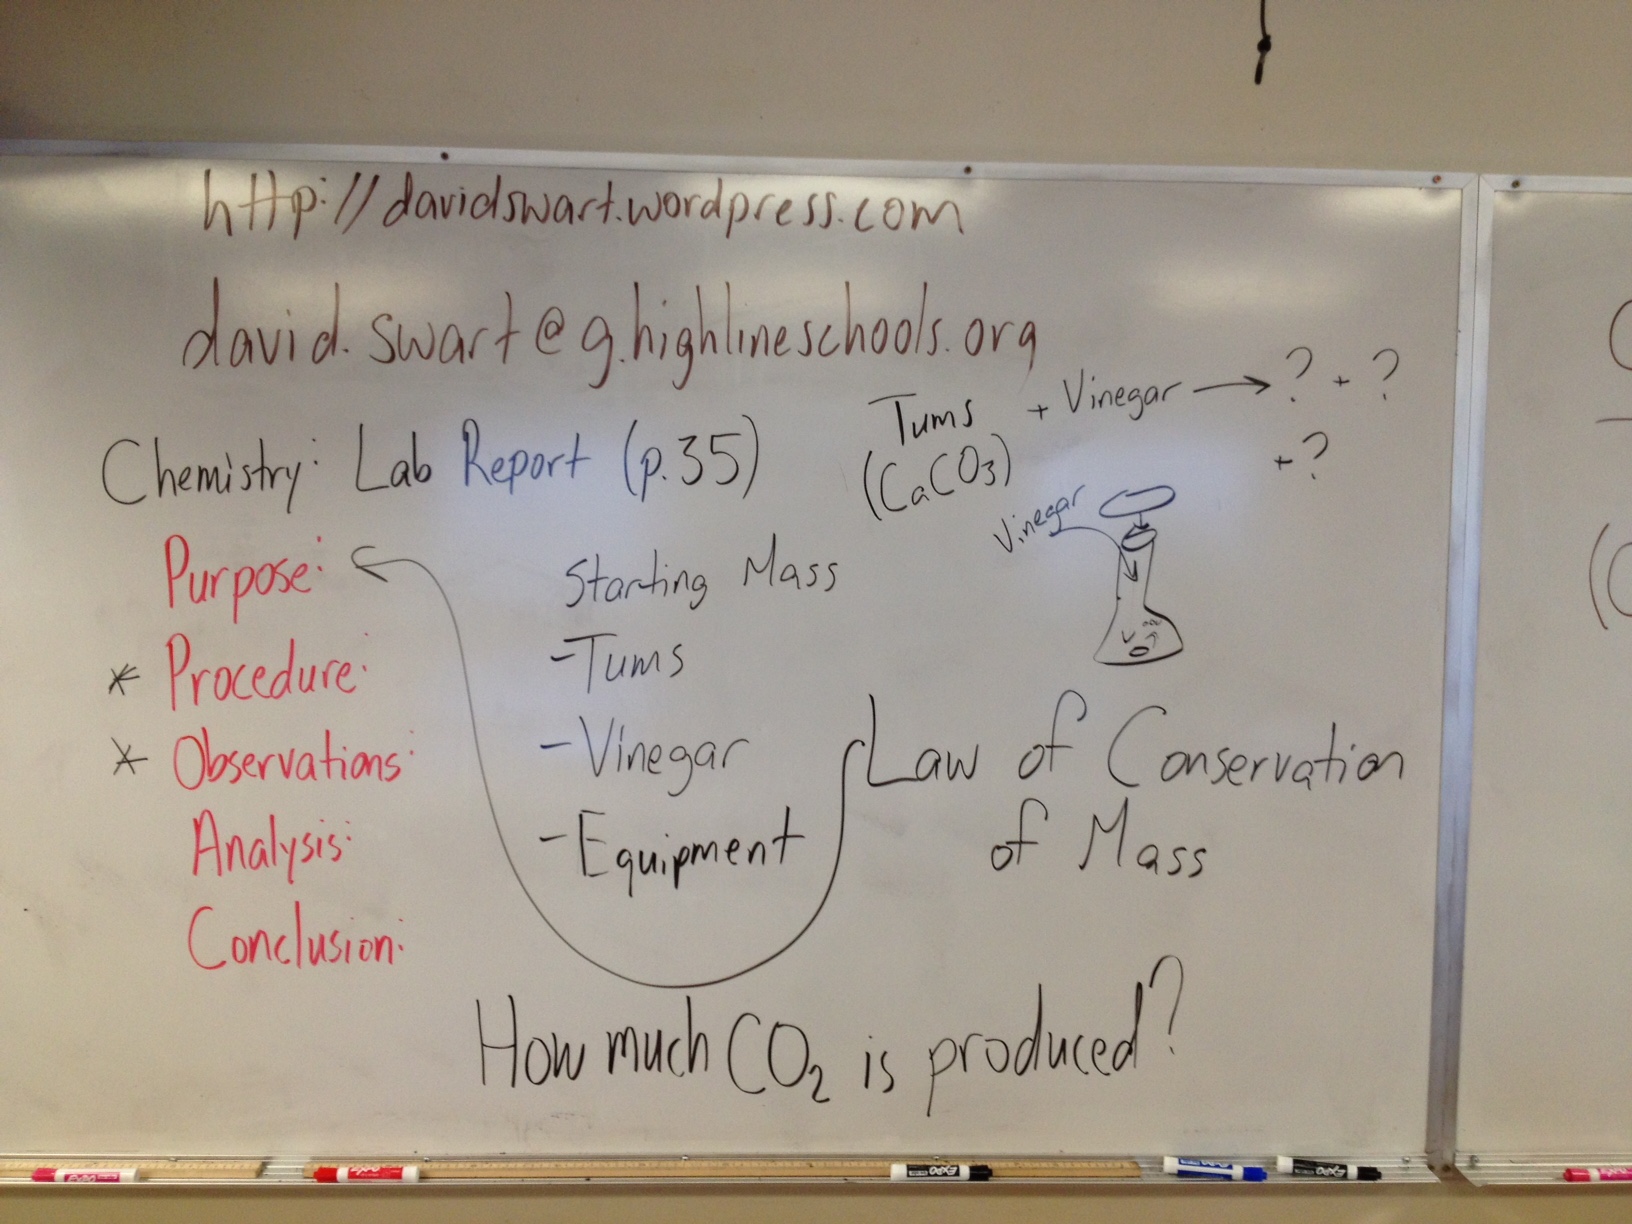 http://davidswart.wordpress.com
david.swart@g.highlineschools.org
Tums + Vinegar → ? + ?
(CaCO3) + ?
Chemistry: Lab Report (p.35)
Vinegar
Purpose:
* Procedure:
* Observations:
Analysis:
Conclusion:
Starting Mass
- Tums
- Vinegar
- Equipment
V
Law of Conservation
of Mass
How much CO₂ is produced?
EXPO
EXPO
EXPO
EXPO
EXPO